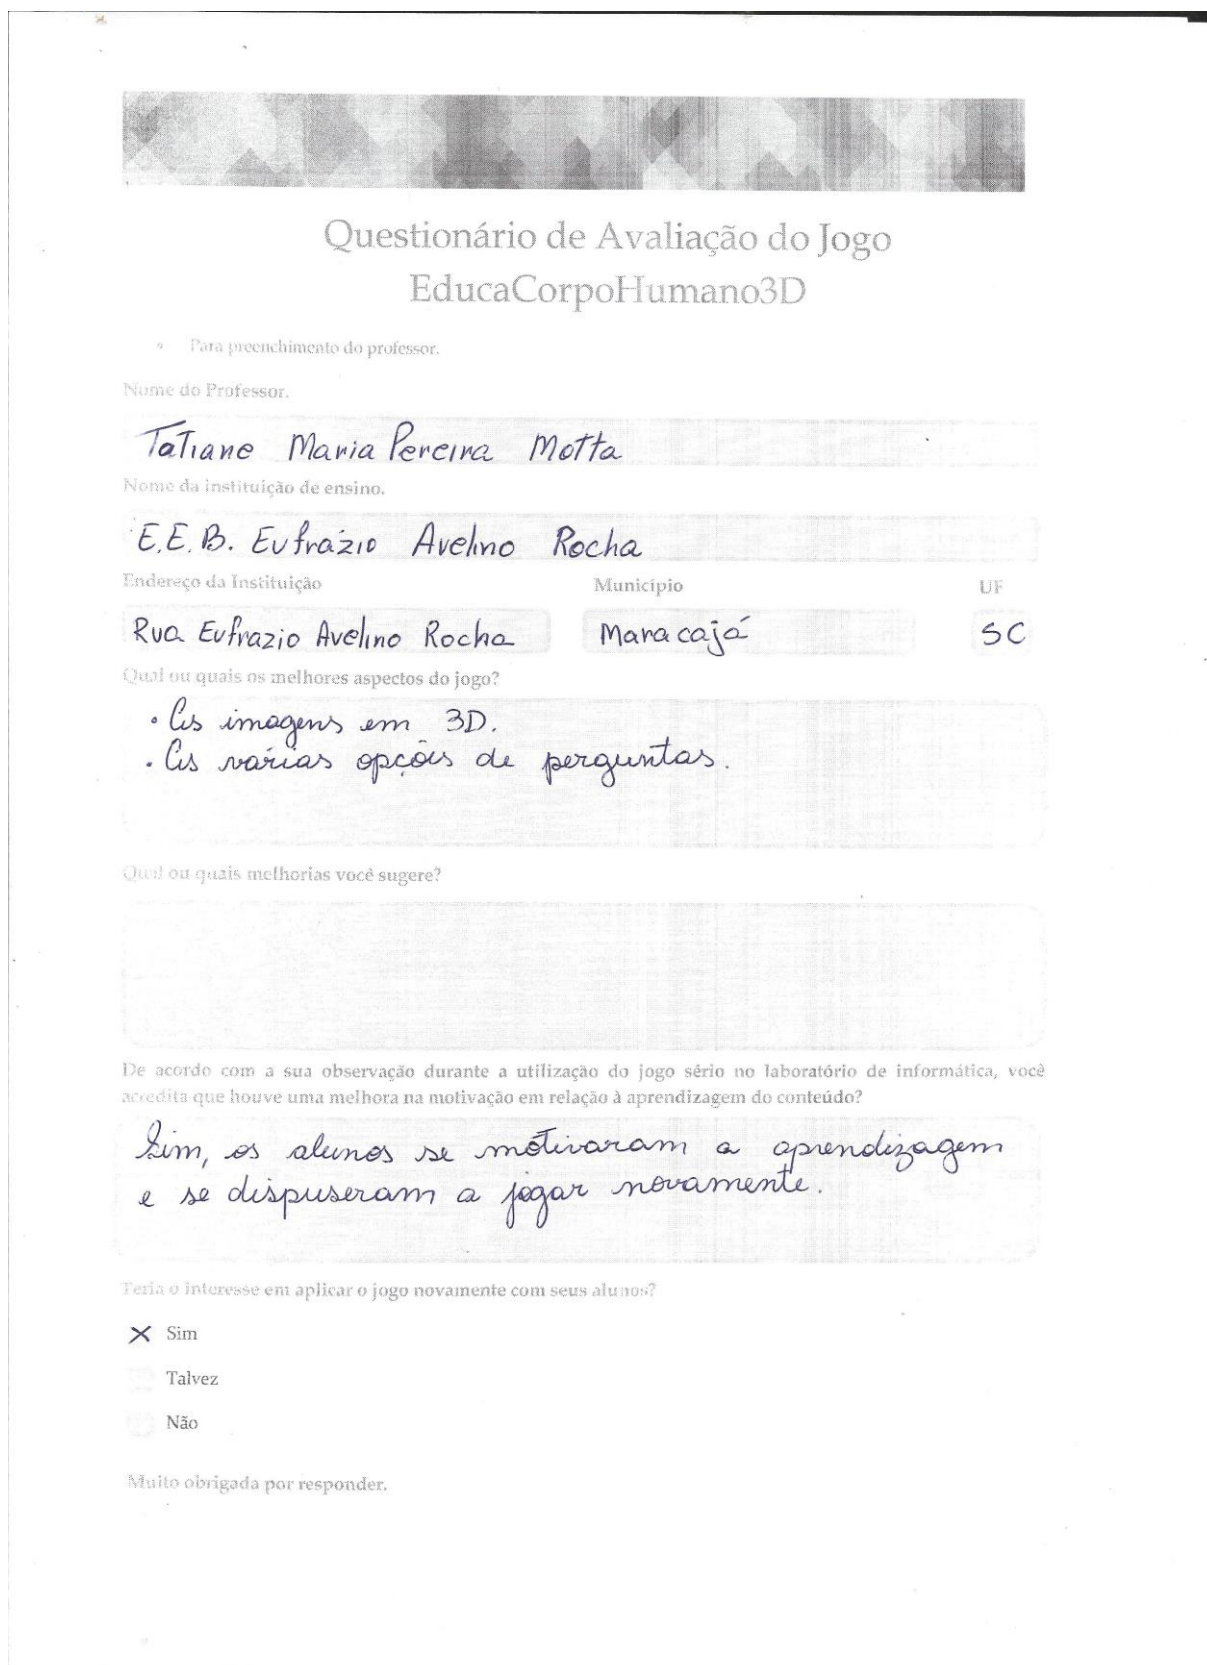 Questionário de Avaliação do Jogo
EducaCorpoHumano3D
• Para preenchimento do professor.
Nome do Professor.
Tatiane Maria Pereira Motta
Nome da instituição de ensino.
E.E.B. Eufrázio Avelino Rocha
Endereço da Instituição Município UF
Rua Eufrazio Avelino Rocha Maracajá SC
Qual ou quais os melhores aspectos do jogo?
• As imagens em 3D.
• As várias opções de perguntas.
Qual ou quais melhorias você sugere?
De acordo com a sua observação durante a utilização do jogo sério no laboratório de informática, você
acredita que houve uma melhora na motivação em relação à aprendizagem do conteúdo?
Sim, os alunos se motivaram a aprendizagem
e se dispuseram a jogar novamente.
Teria o interesse em aplicar o jogo novamente com seus alunos?
X Sim
Talvez
Não
Muito obrigada por responder.